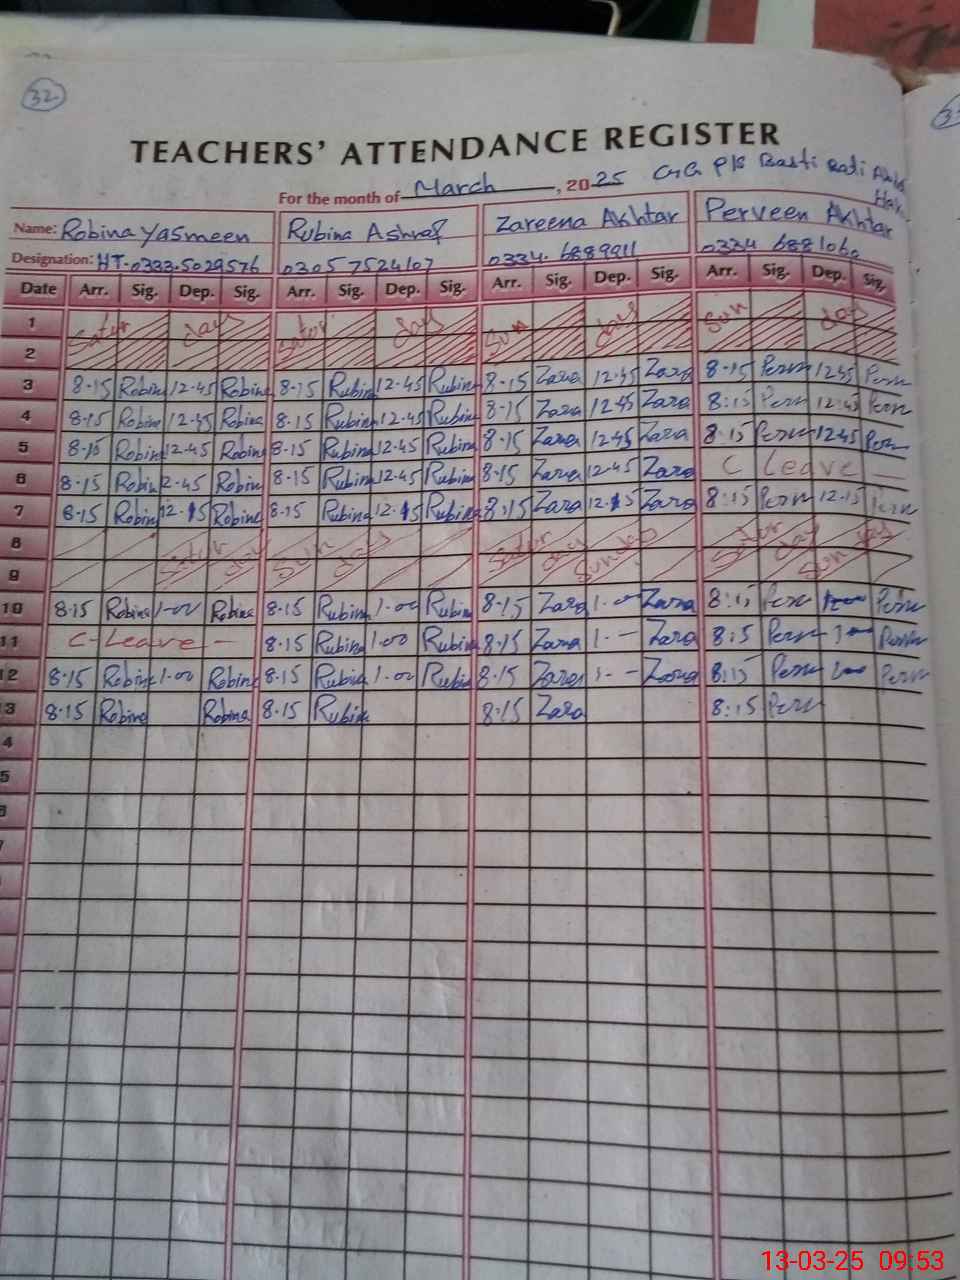 32
TEACHERS' ATTENDANCE REGISTER
For the month of March, 2025 G.G P/S Basti
Name: Robina Yasmeen Rubina Ashraf Zareena Akhtar Perveen Akhtar
Designation: HT-0333-5029576 03057524107 0334-6889911 0334 6881060
Date Arr. Sig. Dep. Sig. Arr. Sig. Dep. Sig. Arr. Sig. Dep. Sig. Arr. Sig. Dep. Sig.
1 Satur days Satur days Sun days Sun day
2
3 8-15 Robina 12-45 Robina 8-15 Rubina 12-45 Rubina 8-15 Zara 12-45 Zara 8-15 Perv 1245 Perv
4 8-15 Robina 12-45 Robina 8-15 Rubina 12-45 Rubina 8-15 Zara 1245 Zara 8:15 Perv 12:45 Perv
5 8-15 Robina 12-45 Robina 8-15 Rubina 12-45 Rubina 8-15 Zara 1245 Zara 8-15 Perv 1245 Perv
6 8-15 Robina 12-45 Robina 8-15 Rubina 12-45 Rubina 8-15 Zara 12-45 Zara C Leave —
7 8-15 Robina 12-15 Robina 8-15 Rubina 12-15 Rubina 8-15 Zara 12-15 Zara 8:15 Perv 12-15 Perv
8 Satur day Sun days Satur day Sundays Satur day Sun days
9
10 8-15 Robina 1-00 Robina 8-15 Rubina 1-00 Rubina 8-15 Zara 1-00 Zara 8:15 Perv Perv
11 C-Leave — 8-15 Rubina 1-00 Rubina 8-15 Zara 1-- Zara 8:5 Perv Perv
12 8-15 Robina 1-00 Robina 8-15 Rubina 1-00 Rubina 8-15 Zara 1-- Zara 8:15 Perv Perv
13 8-15 Robina Robina 8-15 Rubina 8-15 Zara 8:15 Perv
4
5
13-03-25 09:53